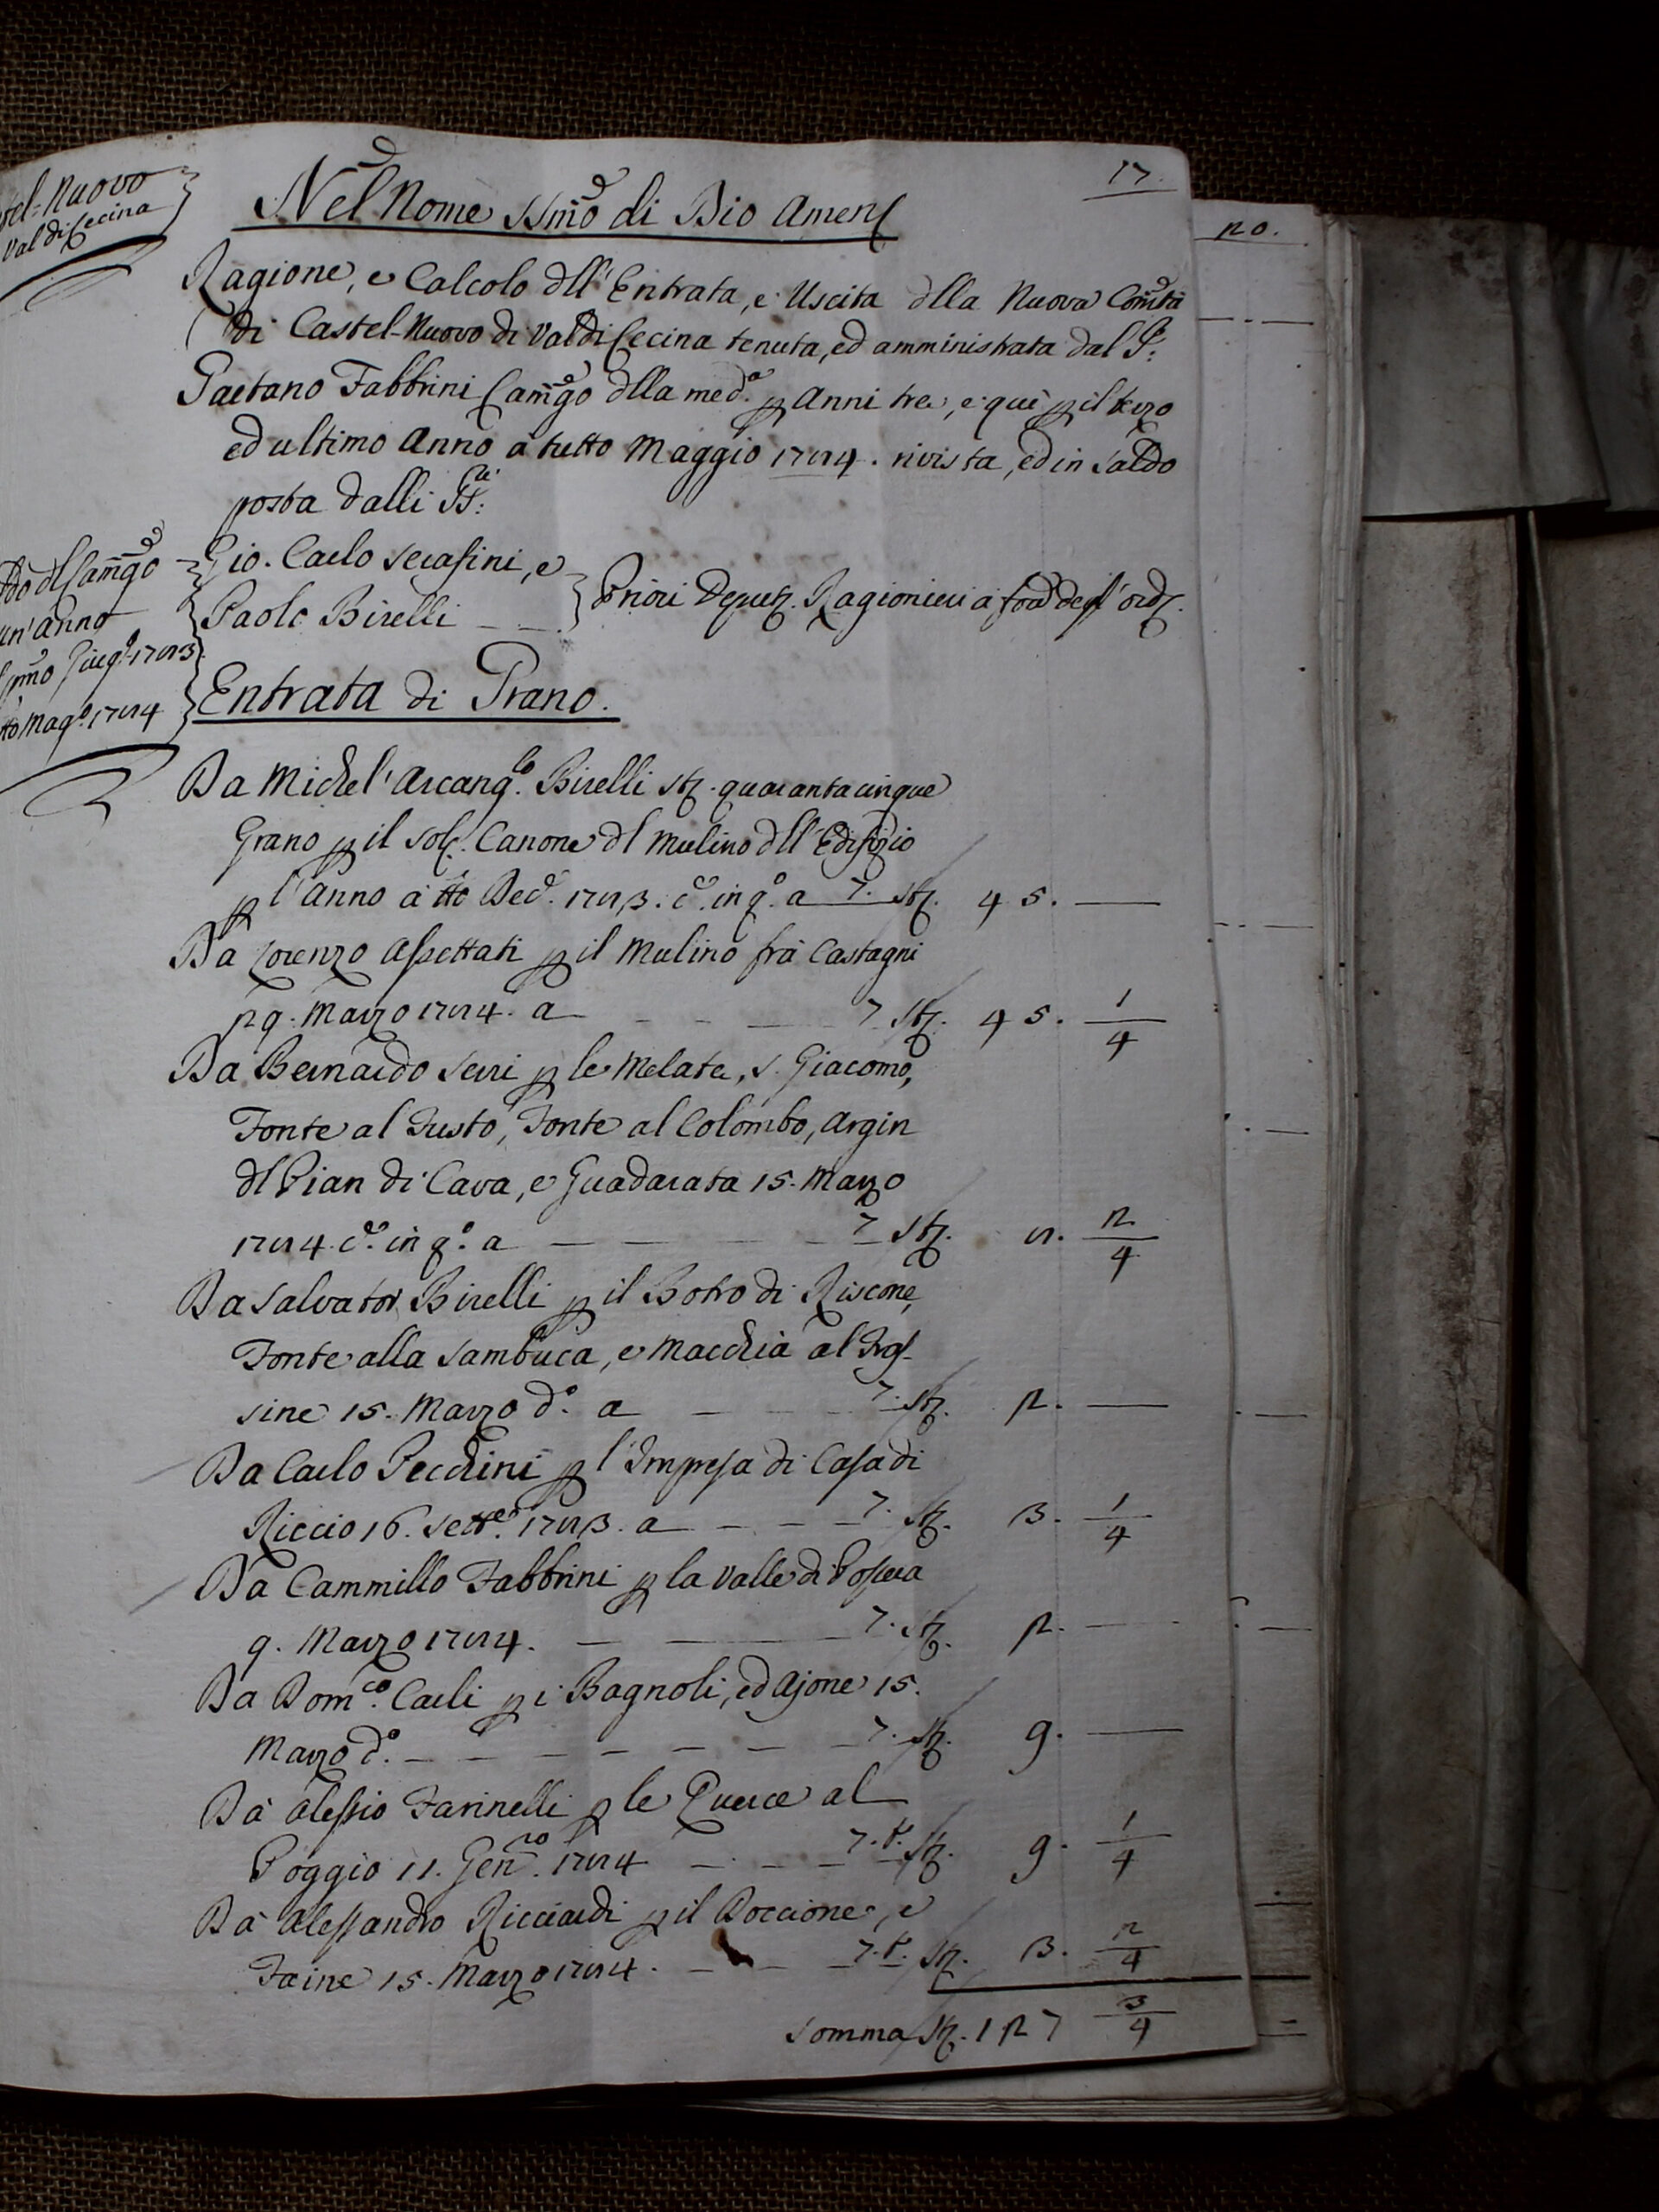 17.
20.
tel-Nuovo
Val di Cecina
Nel Nome SSmo di Dio Amen
Ragione, e Calcolo dll' Entrata, e Uscita dlla Nuova Comtà
di Castel-Nuovo di Val di Cecina tenuta, ed amministrata dal Sr.
Gaetano Fabbrini Camgo dlla meda. p Anni tre, e qui p il terzo
ed ultimo Anno a tutto Maggio 1784. rivista, ed in Saldo
posta dalli SSri.
Gio. Carlo Serafini, e
Paolo Birelli
Priori Deput. Ragionieri a for degl' ord.
dl Camgo
un' anno
pmo Giugo. 1783
tto Mago. 1784
Entrata di Grano.
Da Michel' Arcanglo. Birelli st. quarantacinque
Grano p il sol. Canone dl Mulino dll' Edifizio
p l' Anno a tto Dece. 1783. co. in qo. a 7. st. 45. —
Da Lorenzo Assettati p il Mulino frà Castagni
29. Marzo 1784. a — 7 st. 45. 1/4
Da Bernardo Serri p le Melate, S. Giacomo,
Fonte al Gusto, Fonte al Colombo, Argin
dl Pian di Cava, e Guadarata 15. Marzo
1784. co. in qo. a — 7 st. 8. 2/4
Da Salvator Birelli p il Botro di Riscone,
Fonte alla Sambuca, e Macchia al Fras-
sine 15. Marzo do. a — 7. st. 2. —
Da Carlo Pecchini p l' Impresa di Casa di
Riccio 16. Sette. 1783. a — 7. st. 3. 1/4
Da Cammillo Fabbrini p la Valle di Posera
9. Marzo 1784. — 7. st. 2. —
Da Domco. Carli p i Bagnoli, ed Ajone 15.
Marzo do. — 7. st. 9. —
Da Alessio Farinelli p le Querce al
Poggio 11. Genro. 1784 — 7.8. st. 9. 1/4
Da Alessandro Ricciardi p il Doccione, e
Faine 15. Marzo 1784. — 7.8. st. 3. 2/4
Somma st. 127 3/4